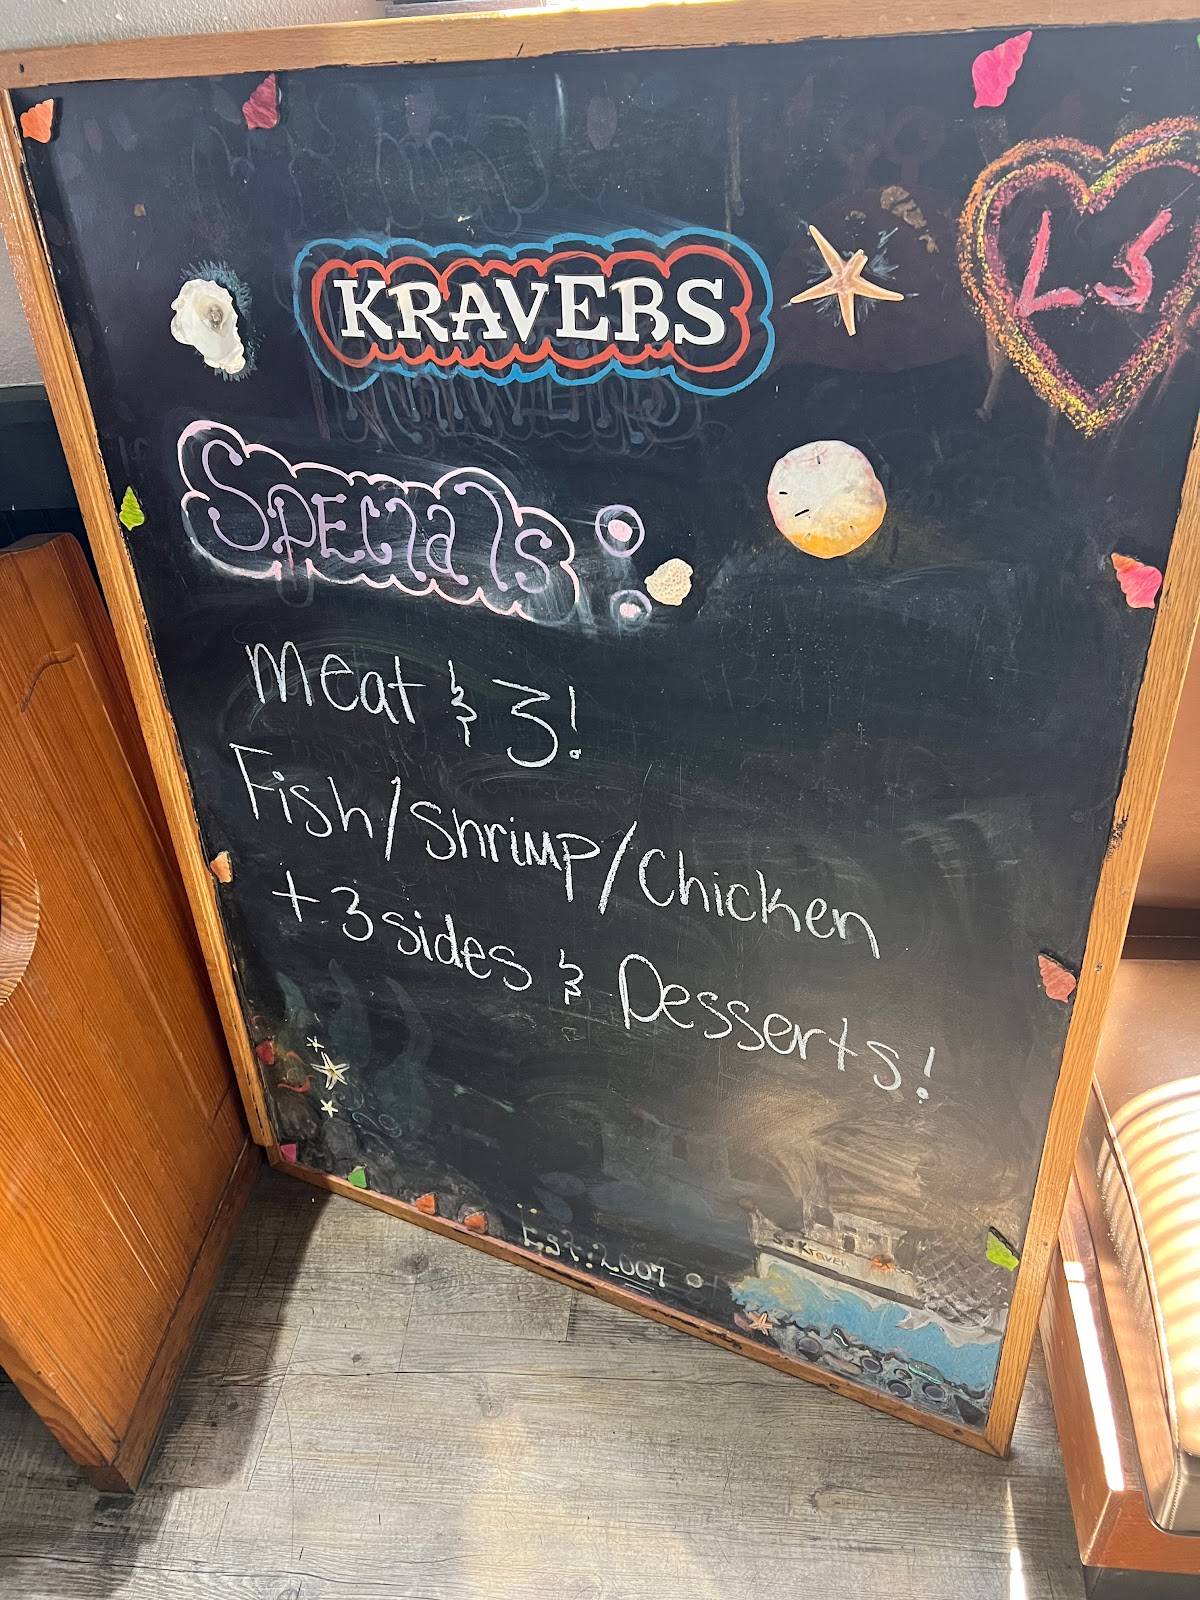 KRAVERS
LS
Specials:
meat & 3!
Fish/Shrimp/Chicken
+ 3 sides & Desserts!
Est: 2007
SS Kraver